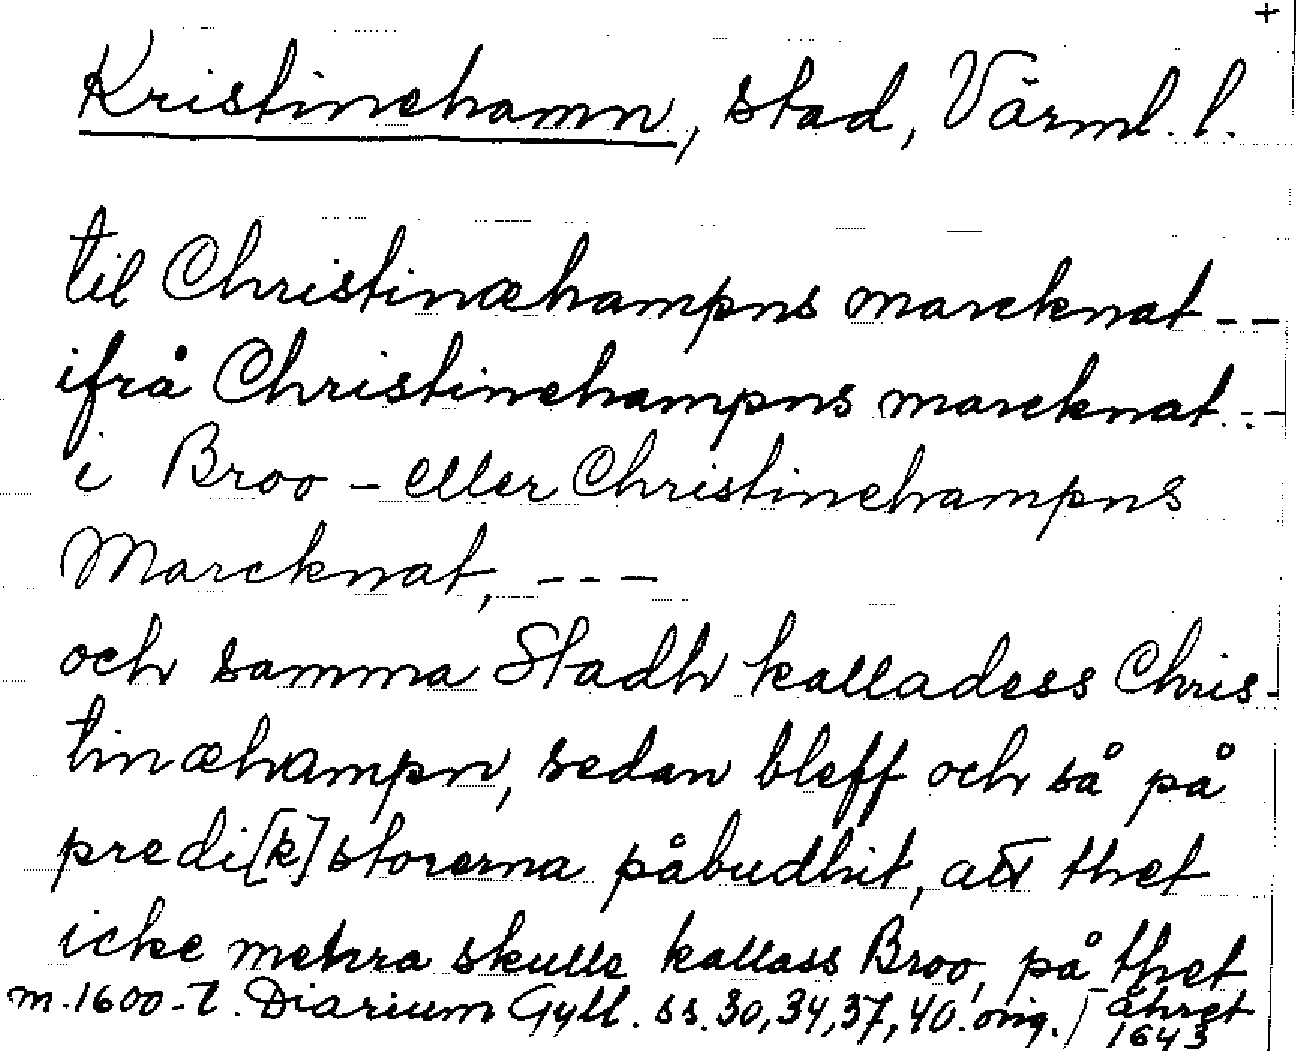 +
Kristinehamn, stad, Värml. l.
til Christinæhampns marcknat - -
ifrå Christinehampns marcknat - -
i Broo - eller Christinehampns
Marcknat, - - -
och samma Stadh kalladess Chris-
tinæhampn, sedan bleff och så på
predi[k]storerna påbudhit, att thet
icke mehra skulle kallass Broo, på thet
m. 1600-t. Diarium Gyll. ss. 30, 34, 37, 40. orig. / åhret
1643